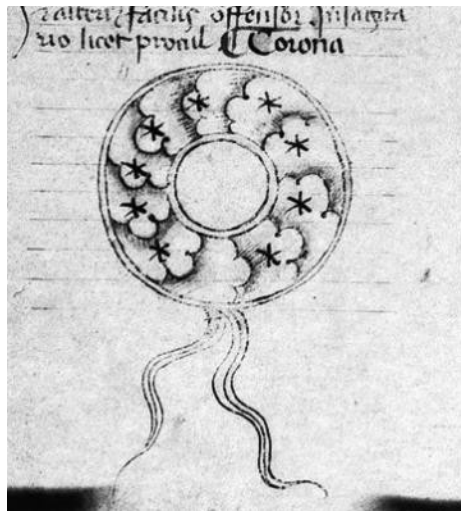 facilis offensor In sagitta
rio licet procul ¶ Corona